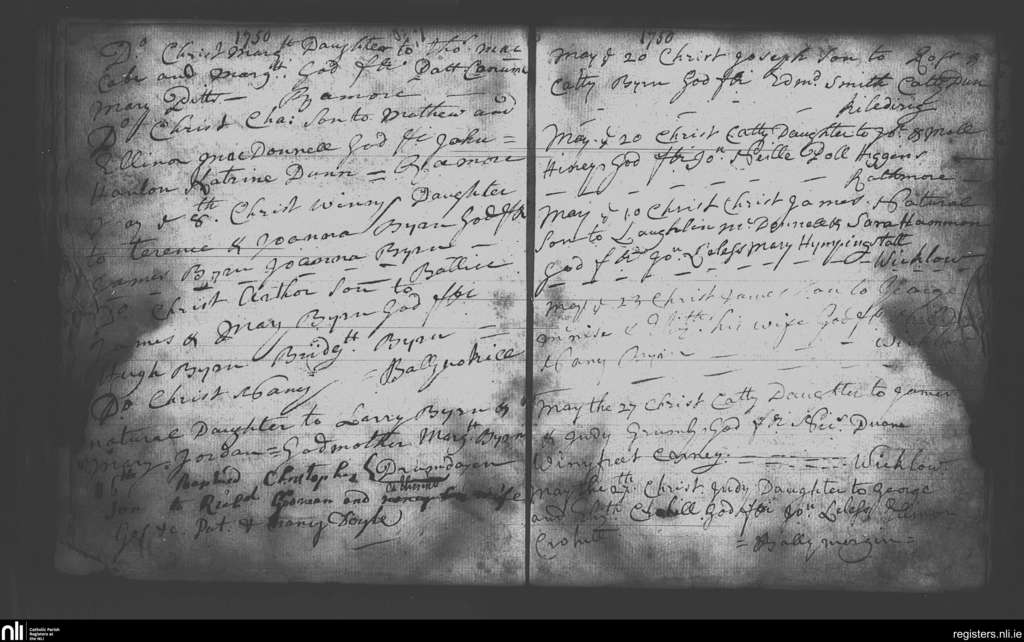 1750
Do Christ Margtt Daughter to Thos. Mac
Cabe and Margtt. God ffrs Patt
Mary Pitts — Ramore —
Do Christ Cha: Son to Mathew and
Ellinor MacDonnell God ffrs John =
Hanlon Katrine Dunn = Ramore
May ye 8th. Christ Winny Daughter
to Terence & Joanna Byrn God ffrs
James Byrn Joanna Byrn —
Do Christ Arthor Son to
James & Mary Byrn God ffrs
Hugh Byrn Bridgtt Byrn —
Do Christ Nancy = Ballynokice
natural Daughter to Larry Byrn &
Mary Jordan = Godmother Margtt Byrn
16th Baptised Christopher Drumdagen
Son to Richd and Catherine his wife
Gos &c. Pat. & nancy Doyle
1750
May ye 20 Christ Joseph Son to
Catty Byrn God ffrs Edmd Smith Catty Dun
Kiledinig
May ye 20 Christ Catty Daughter to Jon. & Mall
Hickey God ffrs Jon. Neille & Doll Higgens
Rathmore —
May ye 10 Christ Christ James. Natural
Son to Laughlen McDonnell & Sara Hammon
God ffrs Jon. Leless Mary Hympingstall
Wicklow
May ye 23 Christ James Son to George
& his wife God ffrs
Nancy Byrn Wicklow
May the 27 Christ Catty Daughter to James
& Judy Grumly God ffrs Nics. Duane
Winnifreet Carney. Wicklow
May the 27. Christ Judy Daughter to George
and Cahill God ffrs Jon. Leless
= Ballymergin =
nli
Catholic Parish
Registers at
the NLI
registers.nli.ie